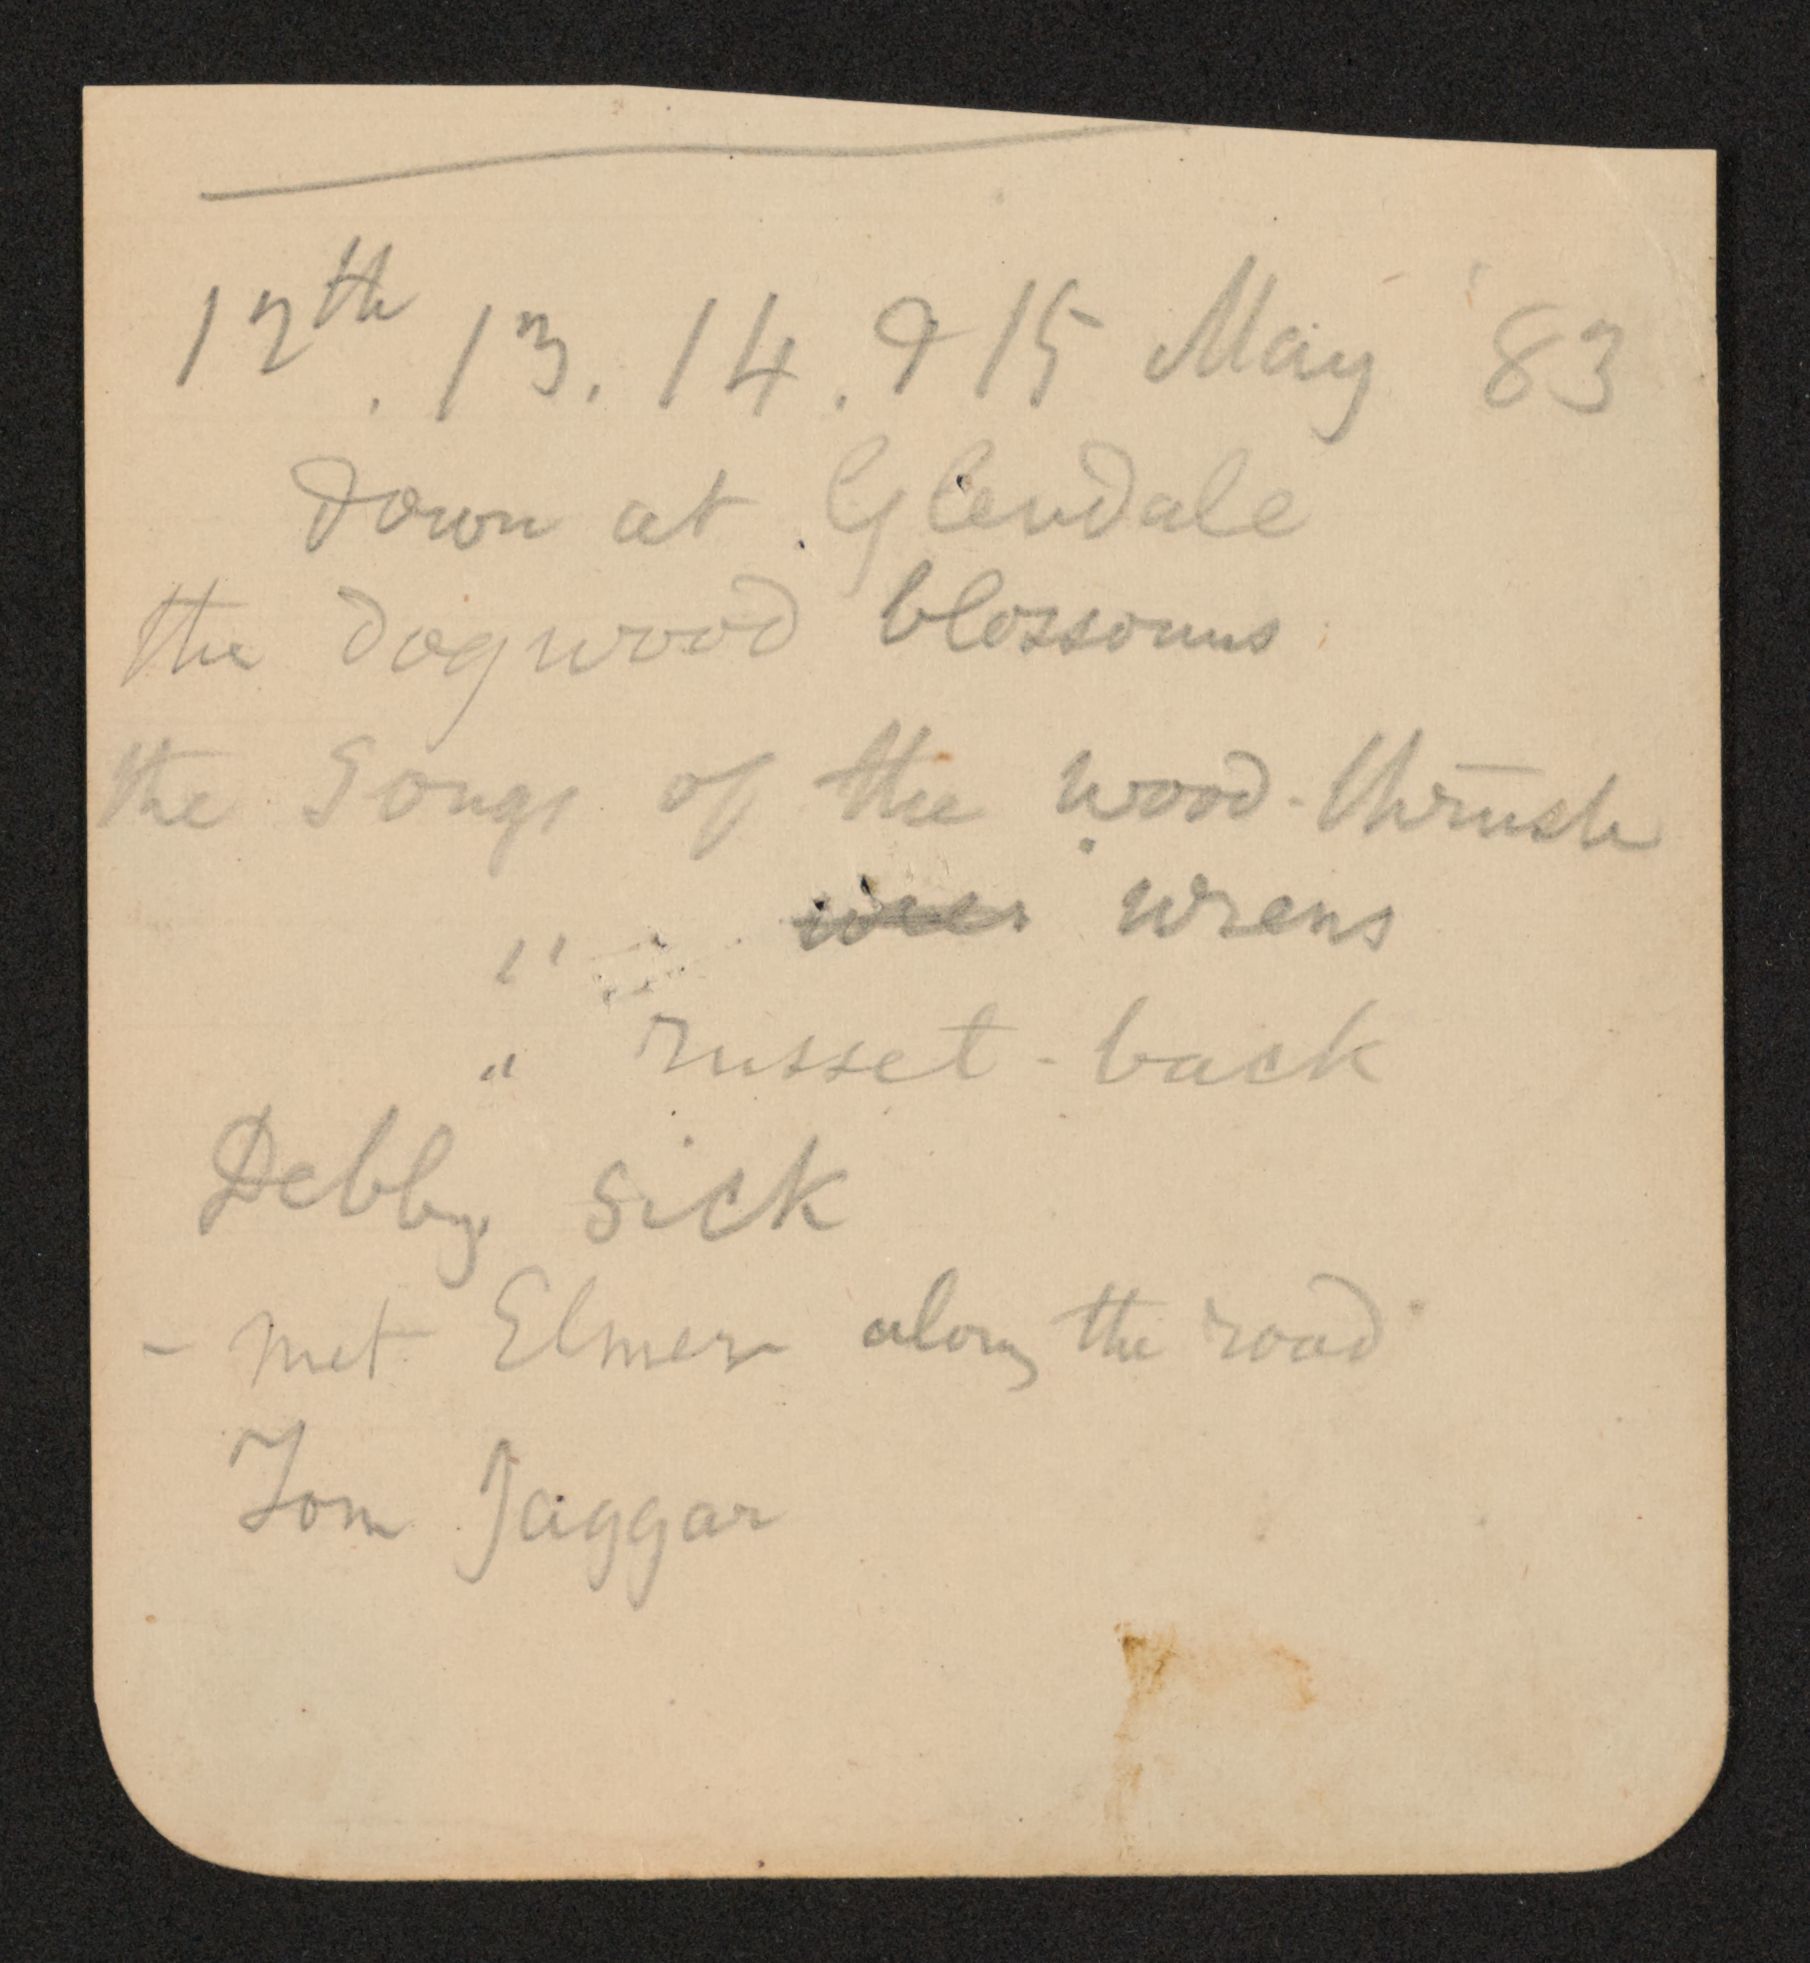 12th. 13. 14. & 15 May '83
down at Glendale
the dogwood blossoms
the Songs of the wood-thrush
" wrens
" russet-back
Debby sick
- met Elmer along the road
Tom Jaggar